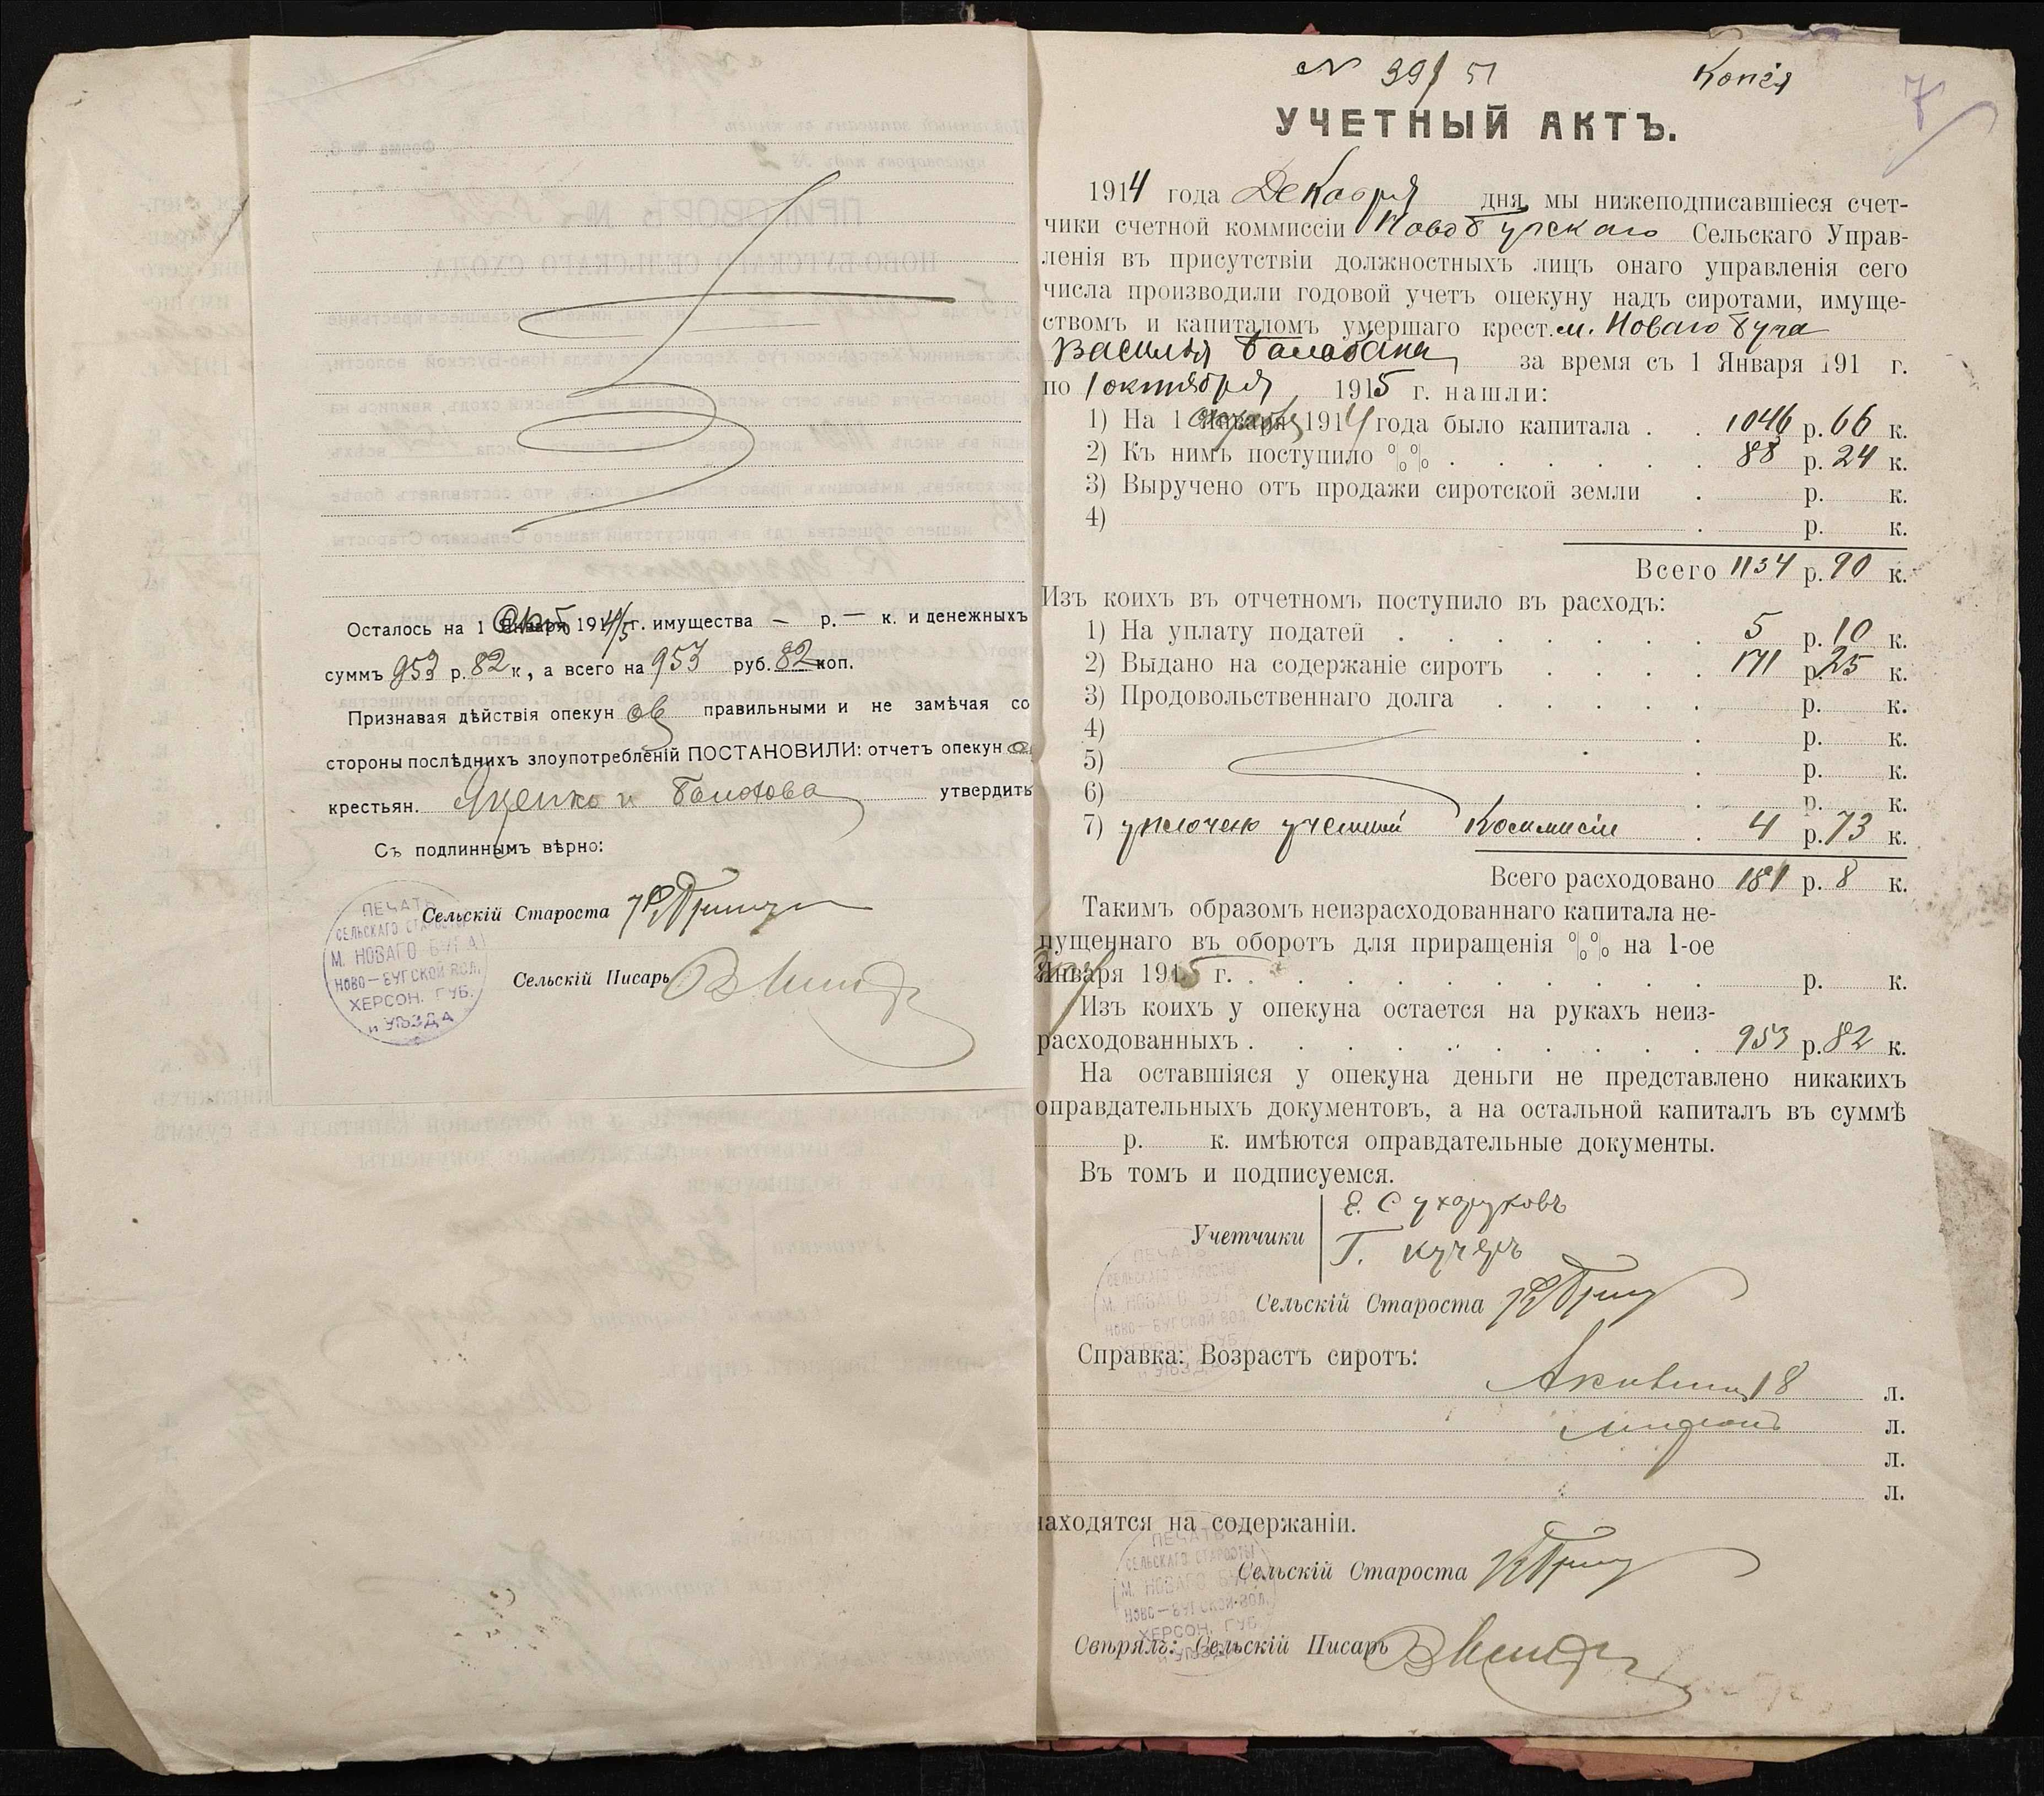 Осталось на 1 Окт 1914/5 г. имущества — р. — к. и денежныхъ
суммъ 953 р. 82 к, а всего на 953 руб. 82 коп.
Признавая дѣйствія опекун ов правильными и не замѣчая со
стороны послѣднихъ злоупотребленій ПОСТАНОВИЛИ: отчет опекун ов
крестьян. Яценко и утвердить
Съ подлиннымъ вѣрно:
Сельскій Староста
Сельскій Писарь
ПЕЧАТЬ
СЕЛЬСКАГО СТАРОСТЫ
М. НОВАГО БУГА
НОВО-БУГСКОЙ ВОЛ.
ХЕРСОН. ГУБ.
и УѢЗДА
№ 39/51 Копія
7
УЧЕТНЫЙ АКТЪ.
1914 года Декабря дня, мы нижеподписавшіеся счет-
чики счетной коммиссіи Новобугскаго Сельскаго Управ-
ленія въ присутствіи должностныхъ лицъ онаго управленія сего
числа производили годовой учетъ опекуну надъ сиротами, имуще-
ствомъ и капиталомъ умершаго крест. м. Новаго Буга
Василья Балабана за время съ 1 Января 191 г.
по 1 октября 1915 г. нашли:
1) На 1 Января 1914 года было капитала . . 1046 р. 66 к.
2) Къ нимъ поступило %% . . . . . . 88 р. 24 к.
3) Выручено отъ продажи сиротской земли . р. к.
4) . р. к.
Всего 1134 р. 90 к.
Изъ коихъ въ отчетномъ поступило въ расходъ:
1) На уплату податей . . . . . . . 5 р. 10 к.
2) Выдано на содержаніе сиротъ . . . . 171 р. 25 к.
3) Продовольственнаго долга . . . . . р. к.
4) . р. к.
5) . р. к.
6) . р. к.
7) уплочено учетной Коммисіи . 4 р. 73 к.
Всего расходовано 181 р. 8 к.
Такимъ образомъ неизрасходованнаго капитала не-
пущеннаго въ оборотъ для приращенія %% на 1-ое
Января 1915 г. . . . . . . . . . . р. к.
Изъ коихъ у опекуна остается на рукахъ неиз-
расходованныхъ . . . . . . . . . . 953 р. 82 к.
На оставшіяся у опекуна деньги не представлено никакихъ
оправдательныхъ документовъ, а на остальной капиталъ въ суммѣ
р. к. имѣются оправдательные документы.
Въ томъ и подписуемся.
Учетчики
Е. Сухоруковъ
Г. Кучеръ
Сельскій Староста
ПЕЧАТЬ
СЕЛЬСКАГО СТАРОСТЫ
М. НОВАГО БУГА
НОВО-БУГСКОЙ ВОЛ.
ХЕРСОН. ГУБ.
и УѢЗДА
Справка: Возрастъ сиротъ:
18 л.
л.
л.
л.
находятся на содержаніи.
Сельскій Староста
ПЕЧАТЬ
СЕЛЬСКАГО СТАРОСТЫ
М. НОВАГО БУГА
НОВО-БУГСКОЙ ВОЛ.
ХЕРСОН. ГУБ.
и УѢЗДА
Свѣрялъ: Сельскій Писарь